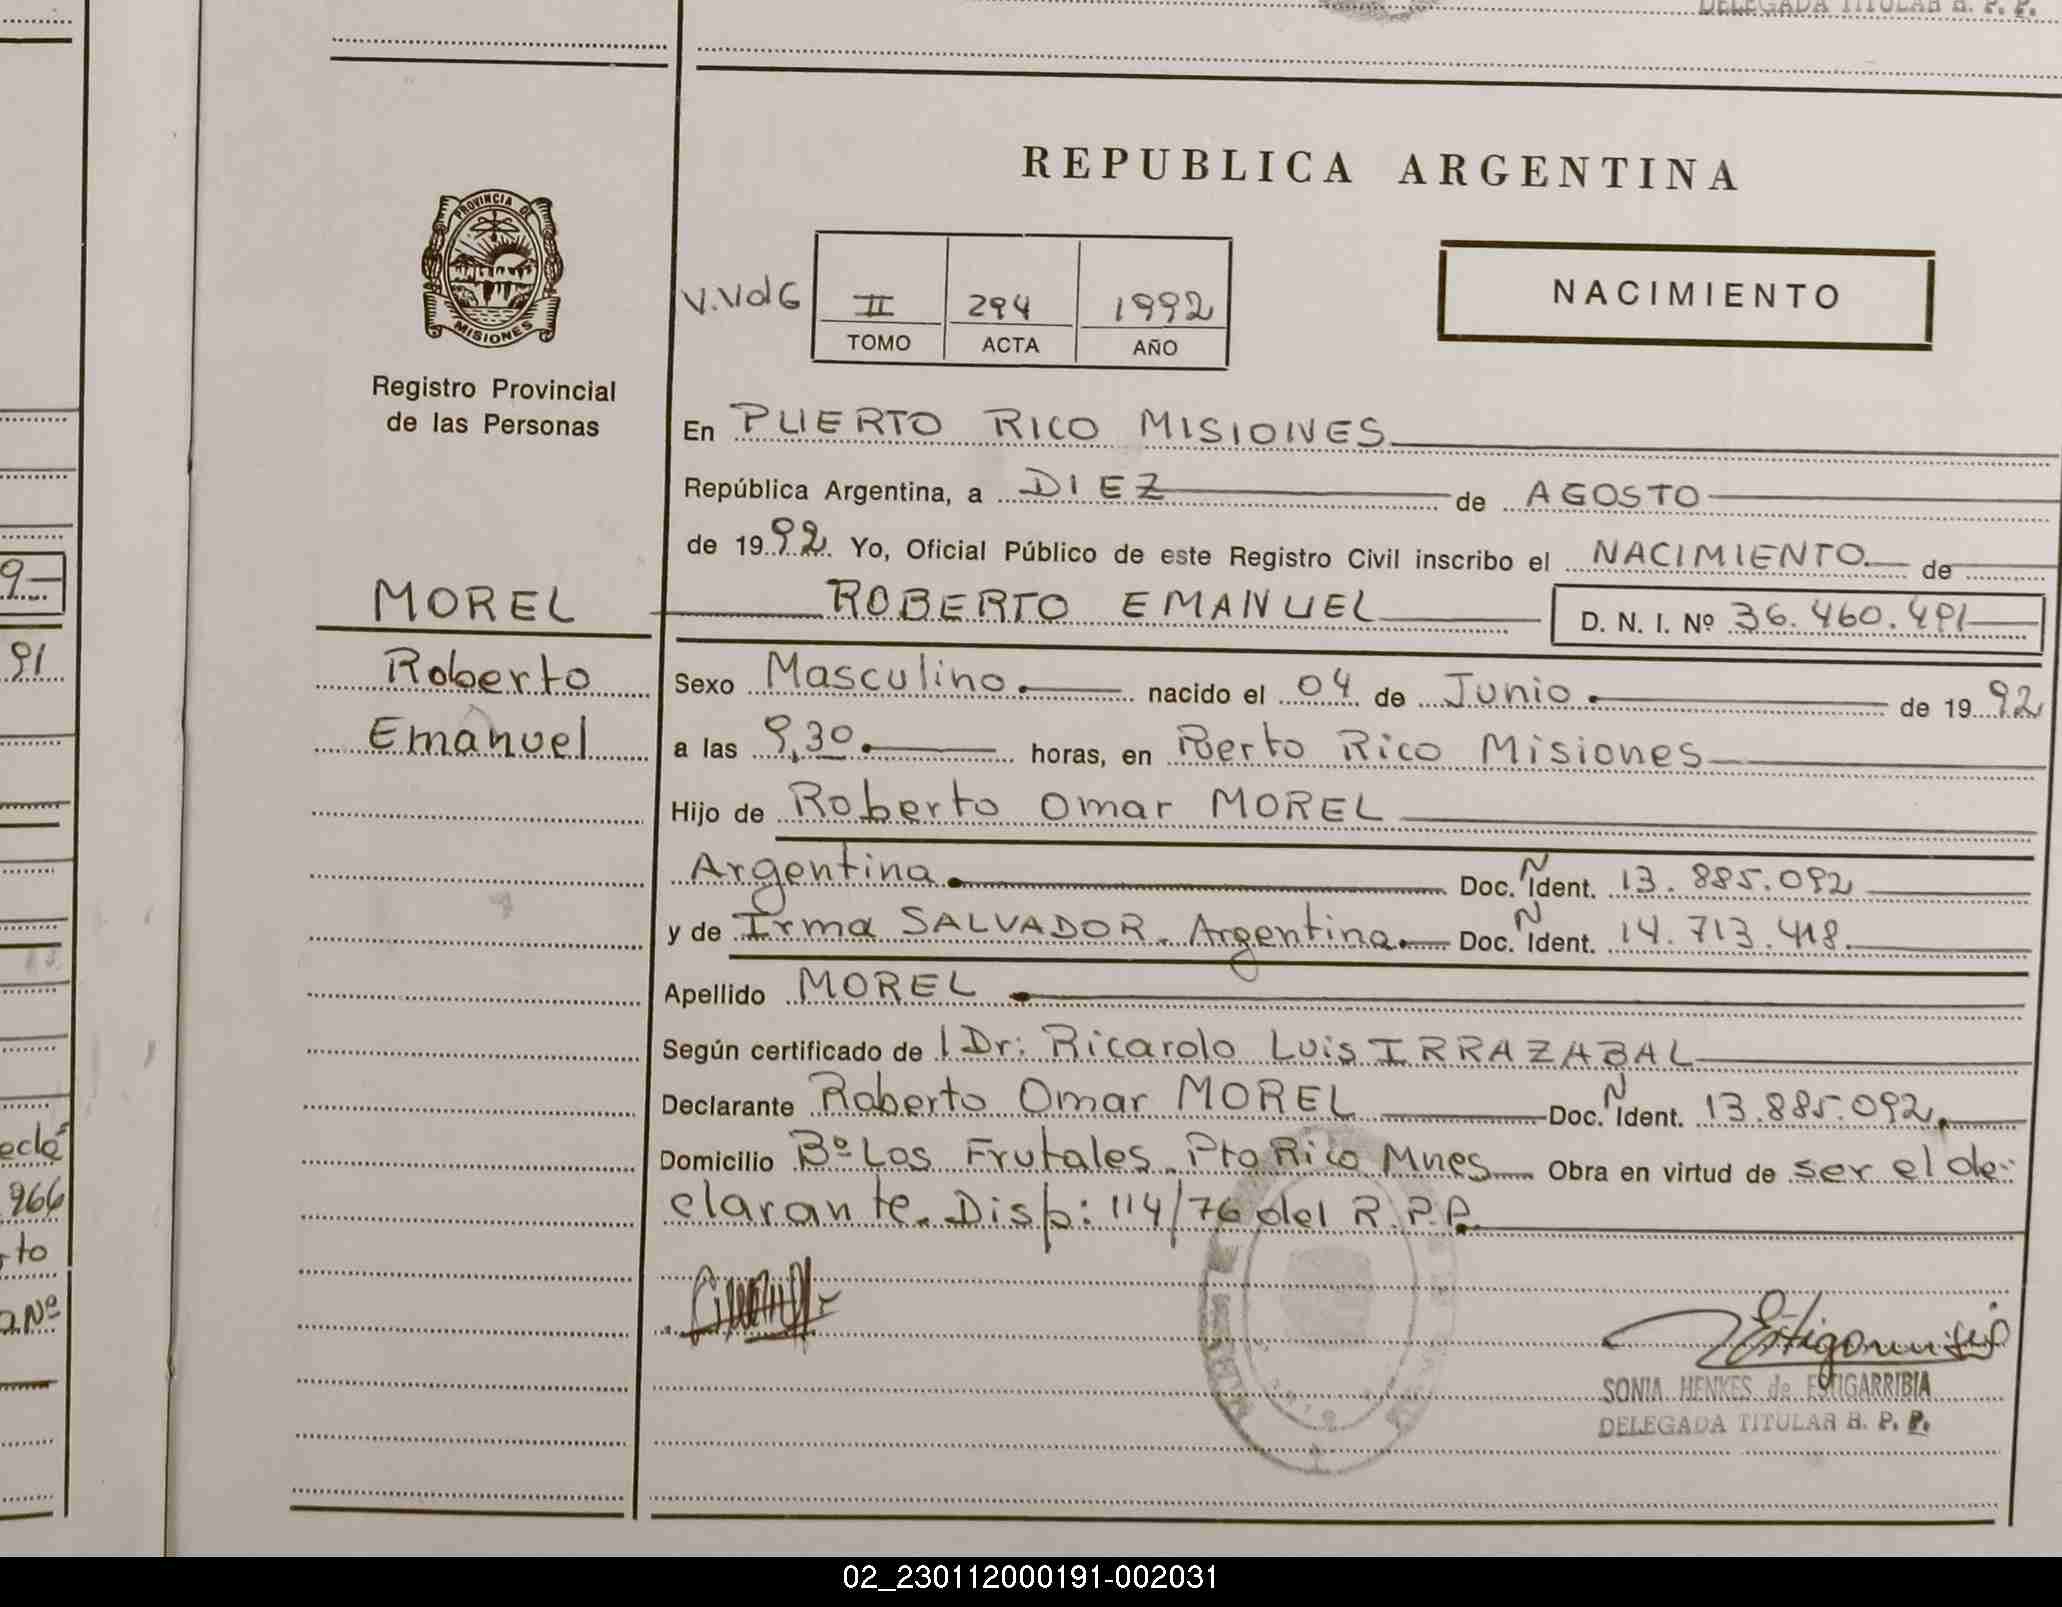 DELEGADA TITULAR R. P. P.
REPUBLICA ARGENTINA
PROVINCIA DE
MISIONES
Registro Provincial
de las Personas
II 294 1992
TOMO ACTA AÑO
NACIMIENTO
En PUERTO RICO MISIONES
República Argentina, a DIEZ de AGOSTO
de 1992. Yo, Oficial Público de este Registro Civil inscribo el NACIMIENTO de
MOREL ROBERTO EMANUEL D. N. I. Nº 36.460.491
Roberto Sexo Masculino nacido el 04 de Junio de 1992
Emanuel a las 9,30 horas, en Puerto Rico Misiones
Hijo de Roberto Omar MOREL
Argentina Doc. N Ident. 13.885.092
y de Irma SALVADOR. Argentina. Doc. N Ident. 14.713.418.
Apellido MOREL
Según certificado de l Dr: Ricardo Luis IRRAZABAL
Declarante Roberto Omar MOREL Doc. N Ident. 13.885.092.
Domicilio Bº Los Frutales. Pto Rico Mnes Obra en virtud de ser el de-
clarante. Disp: 114/76 del R.P.P.
SONIA HENKES de ESTIGARRIBIA
DELEGADA TITULAR R. P. P.
9-
91
966
to
Nº
02_230112000191-002031